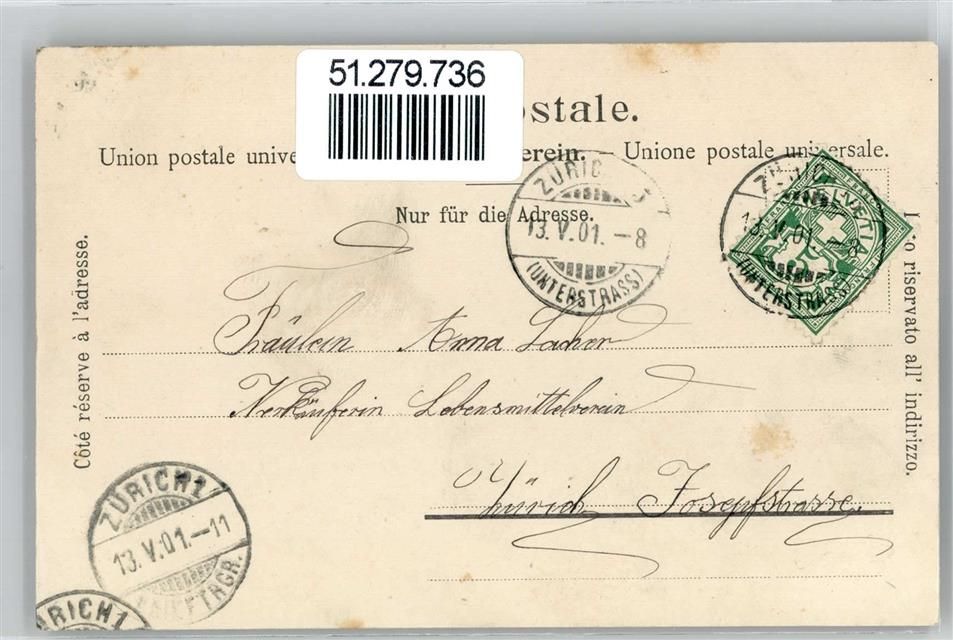 51.279.736
ostale.
Union postale unive erein. – Unione postale universale.
Nur für die Adresse.
Côté réservé à l'adresse.
riservato all' indirizzo.
ZÜRICH
13.V.01.–8
(UNTERSTRASS)
13.V.01.–8
(UNTERSTRASS)
HELVETI
Fräulein Anna Lacher
Verkäuferin Lebensmittelverein
Zürich Josepfstrasse.
ZÜRICH 1
13.V.01.–11
FTRGR.
RICH 1